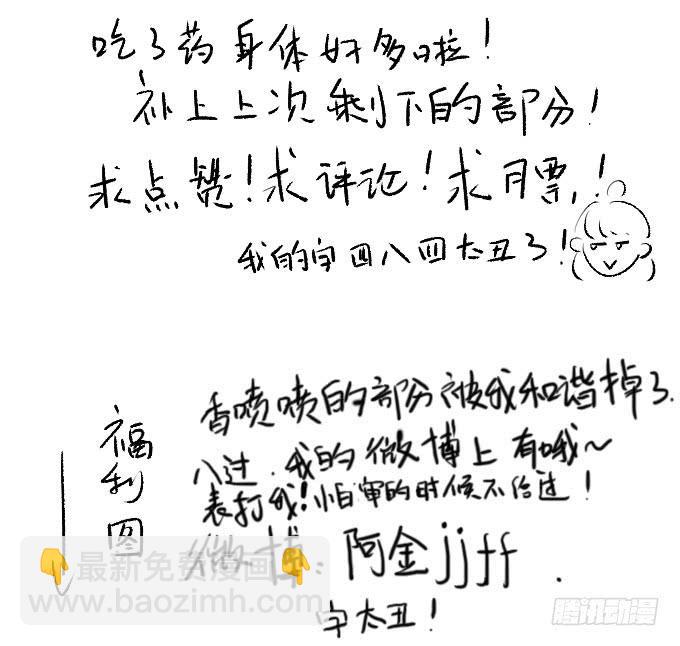 吃了药身体好多啦！
补上上次剩下的部分！
求点赞！求评论！求月票！
我的字四八四太丑了！
香喷喷的部分被我和谐掉了.
八过.我的微博上有哦～
表打我！怕审的时候不给过！
福利图
微博：阿金jjff.
字太丑！
最新免费漫画
www.baozimh.com
腾讯动漫